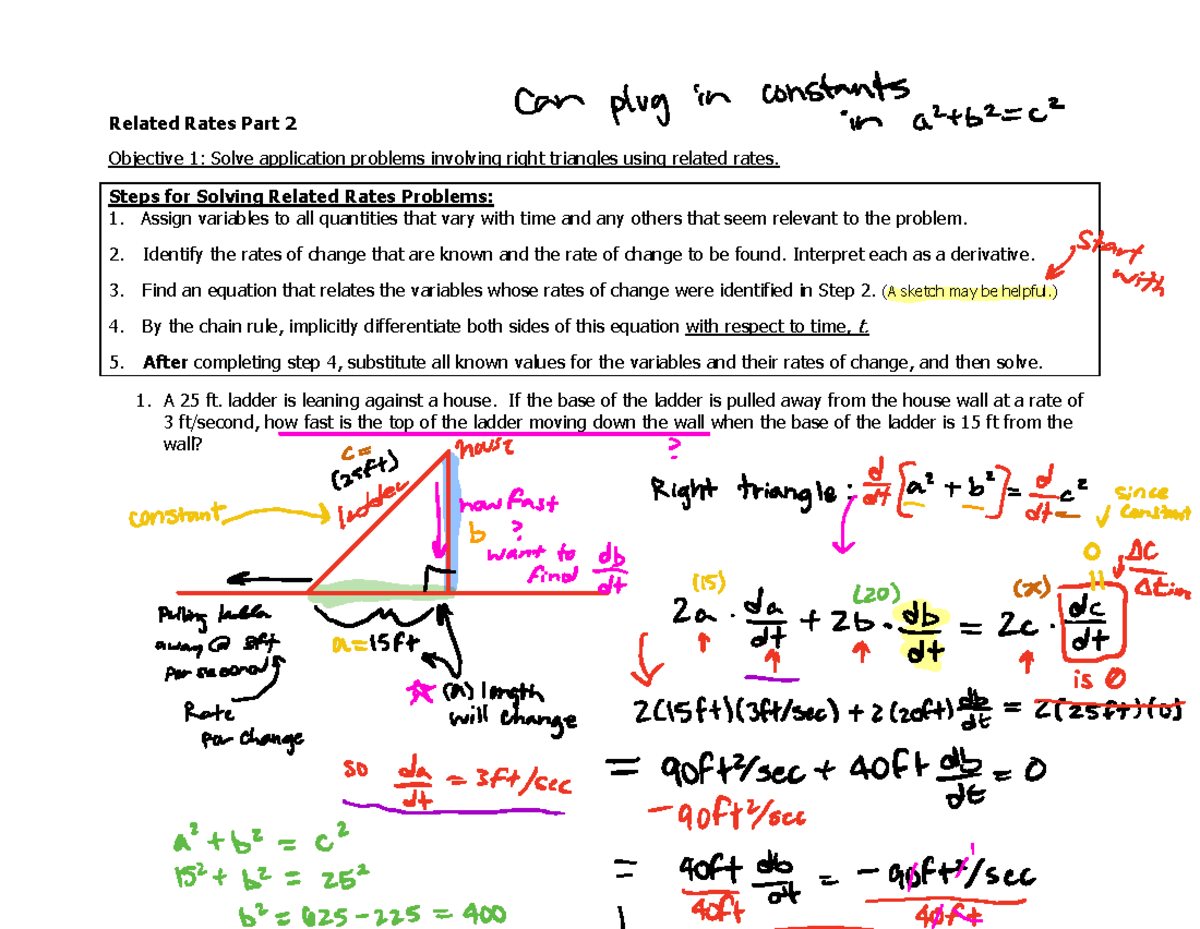 Can plug in constants
in a²+b²=c²
Related Rates Part 2
Objective 1: Solve application problems involving right triangles using related rates.
Steps for Solving Related Rates Problems:
1. Assign variables to all quantities that vary with time and any others that seem relevant to the problem.
2. Identify the rates of change that are known and the rate of change to be found. Interpret each as a derivative.
Start with
3. Find an equation that relates the variables whose rates of change were identified in Step 2. (A sketch may be helpful.)
4. By the chain rule, implicitly differentiate both sides of this equation with respect to time, t.
5. After completing step 4, substitute all known values for the variables and their rates of change, and then solve.
1. A 25 ft. ladder is leaning against a house. If the base of the ladder is pulled away from the house wall at a rate of
3 ft/second, how fast is the top of the ladder moving down the wall when the base of the ladder is 15 ft from the
wall?
?
c=
(25ft)
ladder
house
constant
how fast
?
b
want to
find db/dt
Pulling ladder
away @ 3ft
per second
Rate
per change
a=15ft
(a) length
will change
so da/dt = 3ft/sec
a² + b² = c²
15² + b² = 25²
b² = 625 - 225 = 400
Right triangle: d/dt [a² + b²] = d/dt c²
since
constant
0
ΔC/Δtim
(15) (20) (x)
2a · da/dt + 2b · db/dt = 2c · dc/dt
is 0
2(15ft)(3ft/sec) + 2(20ft) db/dt = 2(25ft)(0)
= 90ft²/sec + 40ft db/dt = 0
-90ft²/sec
= 40ft db/dt = -90ft²/sec
40ft 40ft